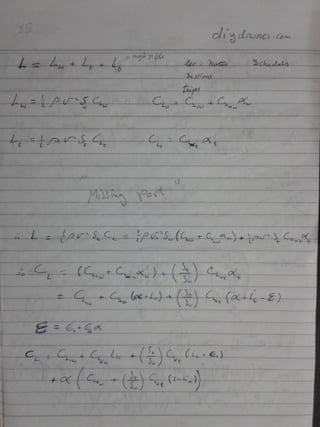 35
diydrones.com
L = L_w + L_t + L_b = negligible
Lec. Notes Schedules
Sessions
L_w = ½ ρ v² S_w C_Lw C_Lw = C_L0w + C_Lαw α
L_t = ½ ρ v² S_t C_Lt C_Lt = C_Lαt α_t
"Missing part"
∴ L = ½ρv² S_w C_L = ½ρv² S_w (C_L0w + C_Lαw α_w) + ½ρv² S_t C_Lαt α_t
∴ C_L = (C_L0w + C_Lαw α_w) + (S_t/S_w) C_Lαt α_t
= C_L0w + C_Lαw (α + i_w) + (S_t/S_w) C_Lαt (α + i_t - ε)
ε = ε₀ + ε_α α
C_L = C_L0w + C_Lαw i_w + (S_t/S_w) C_Lαt (i_t - ε₀)
+ α (C_Lαw + (S_t/S_w) C_Lαt (1 - ε_α))